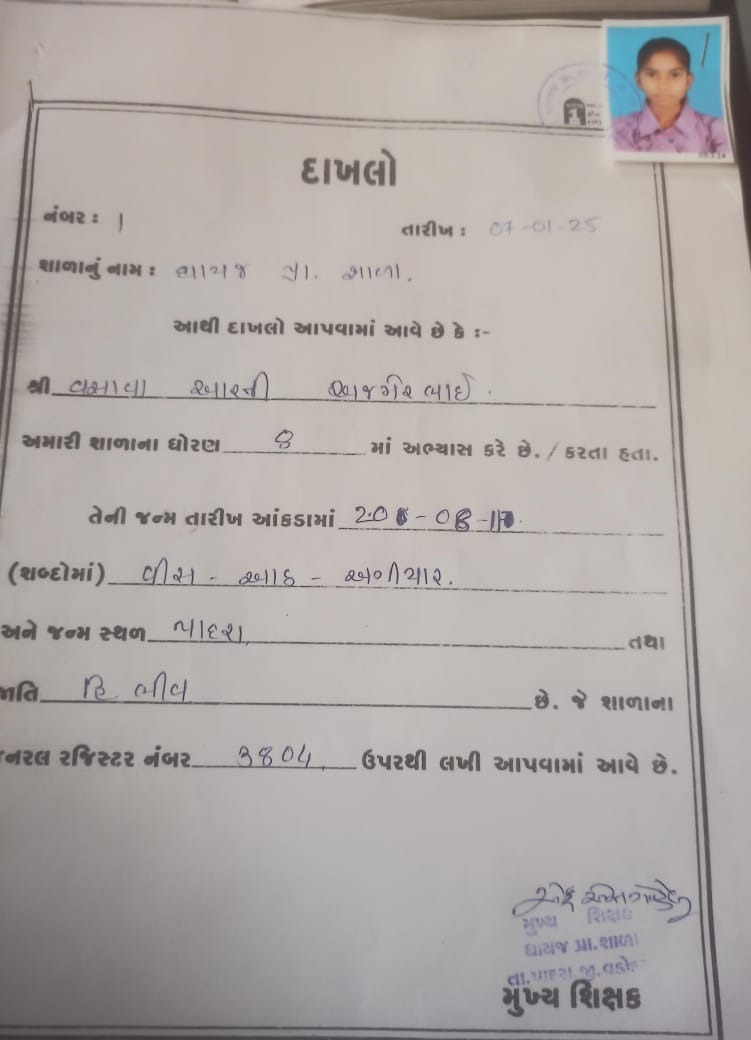 દાખલો
નંબર : 1
તારીખ : 07-01-25
શાળાનું નામ : ઘાયજ પ્રા. શાળા.
આથી દાખલો આપવામાં આવે છે કે :-
શ્રી વસાવા આરતી અજગરભાઈ.
અમારી શાળાના ધોરણ 8 માં અભ્યાસ કરે છે. / કરતા હતા.
તેની જન્મ તારીખ આંકડામાં
(શબ્દોમાં) વીસ - આઠ - અગીયાર.
અને જન્મ સ્થળ પાદરા તથા
જાતિ હિ. ભીલ છે. જે શાળાના
જનરલ રજિસ્ટર નંબર 3804 ઉપરથી લખી આપવામાં આવે છે.
મુખ્ય શિક્ષક
ઘાયજ પ્રા. શાળા
તા. પાદરા જી. વડો
મુખ્ય શિક્ષક